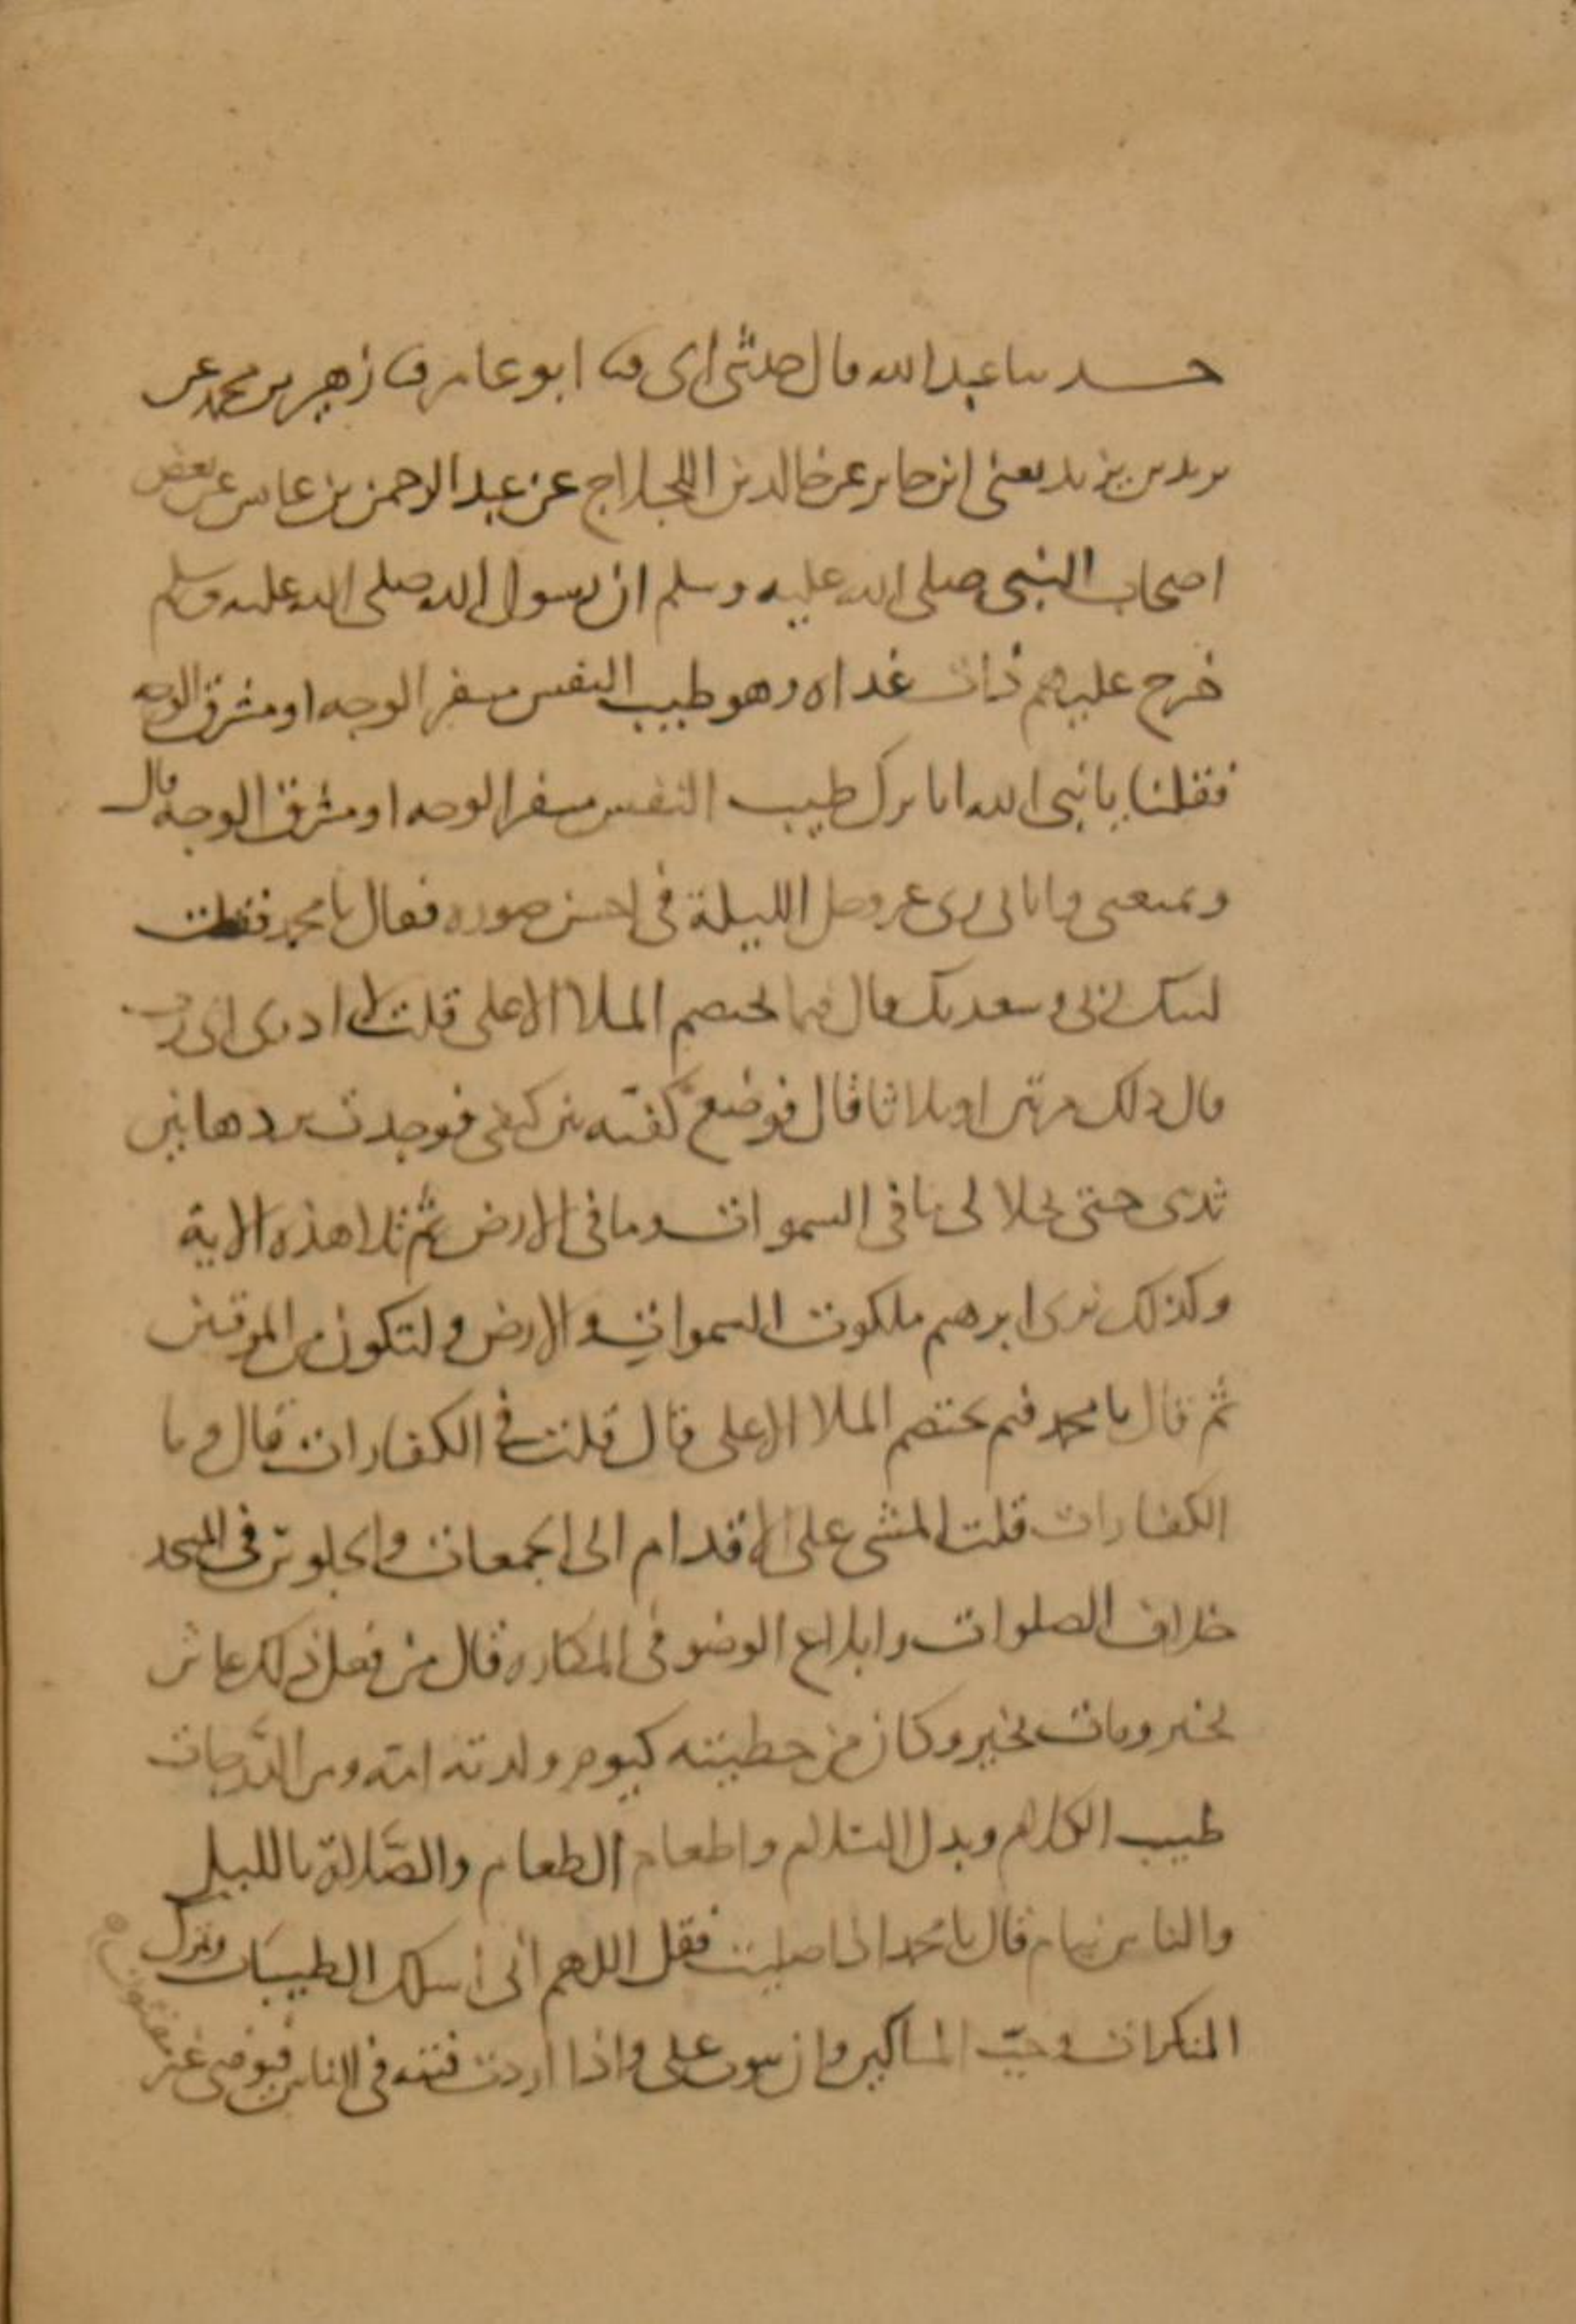 حدثنا عبد الله قال حدثني ابي ثنا ابو عامر ثنا زهير بن محمد عن
يزيد بن يزيد يعني ابن جابر عن خالد بن اللجلاج عن عبد الرحمن بن عايش عن بعض
اصحاب النبي صلى الله عليه وسلم ان رسول الله صلى الله عليه وسلم
خرج عليهم ذات غداه وهو طيب النفس مسفر الوجه او مشرق الوجه
فقلنا يا نبي الله انا نراك طيب النفس مسفر الوجه او مشرق الوجه قال
وما يمنعني واتاني ربي عز وجل الليلة في احسن صوره فقال يا محمد فقلت
لبيك ربي وسعديك قال فيما يختصم الملا الاعلى قلت لا ادري اي رب
قال ذلك مرتين او ثلاثا قال فوضع كفيه بين كتفي فوجدت بردها بين
ثديي حتى تجلا لي ما في السموات وما في الارض ثم تلا هذه الاية
وكذلك نري ابرهيم ملكوت السموات والارض وليكون من الموقنين
ثم قال يا محمد فيم يختصم الملا الاعلى قال قلت في الكفارات قال وما
الكفارات قلت المشي على الاقدام الى الجمعات والجلوس في المسجد
خلاف الصلوات وابلاغ الوضو في المكاره قال من فعل ذلك عاش
بخير ومات بخير وكان من خطيئته كيوم ولدته امه ومن الدرجات
طيب الكلام وبذل السلام واطعام الطعام والصلاة بالليل
والناس نيام قال يا محمد اذا صليت فقل اللهم اني اسلك الطيبات وترك
المنكرات وحب المساكين وان تتوب علي واذا اردت فتنه في الناس فتوفني غير
مفتون